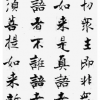 切衆生即非衆
如來是真語者
語者不誑語者
須菩提如來所